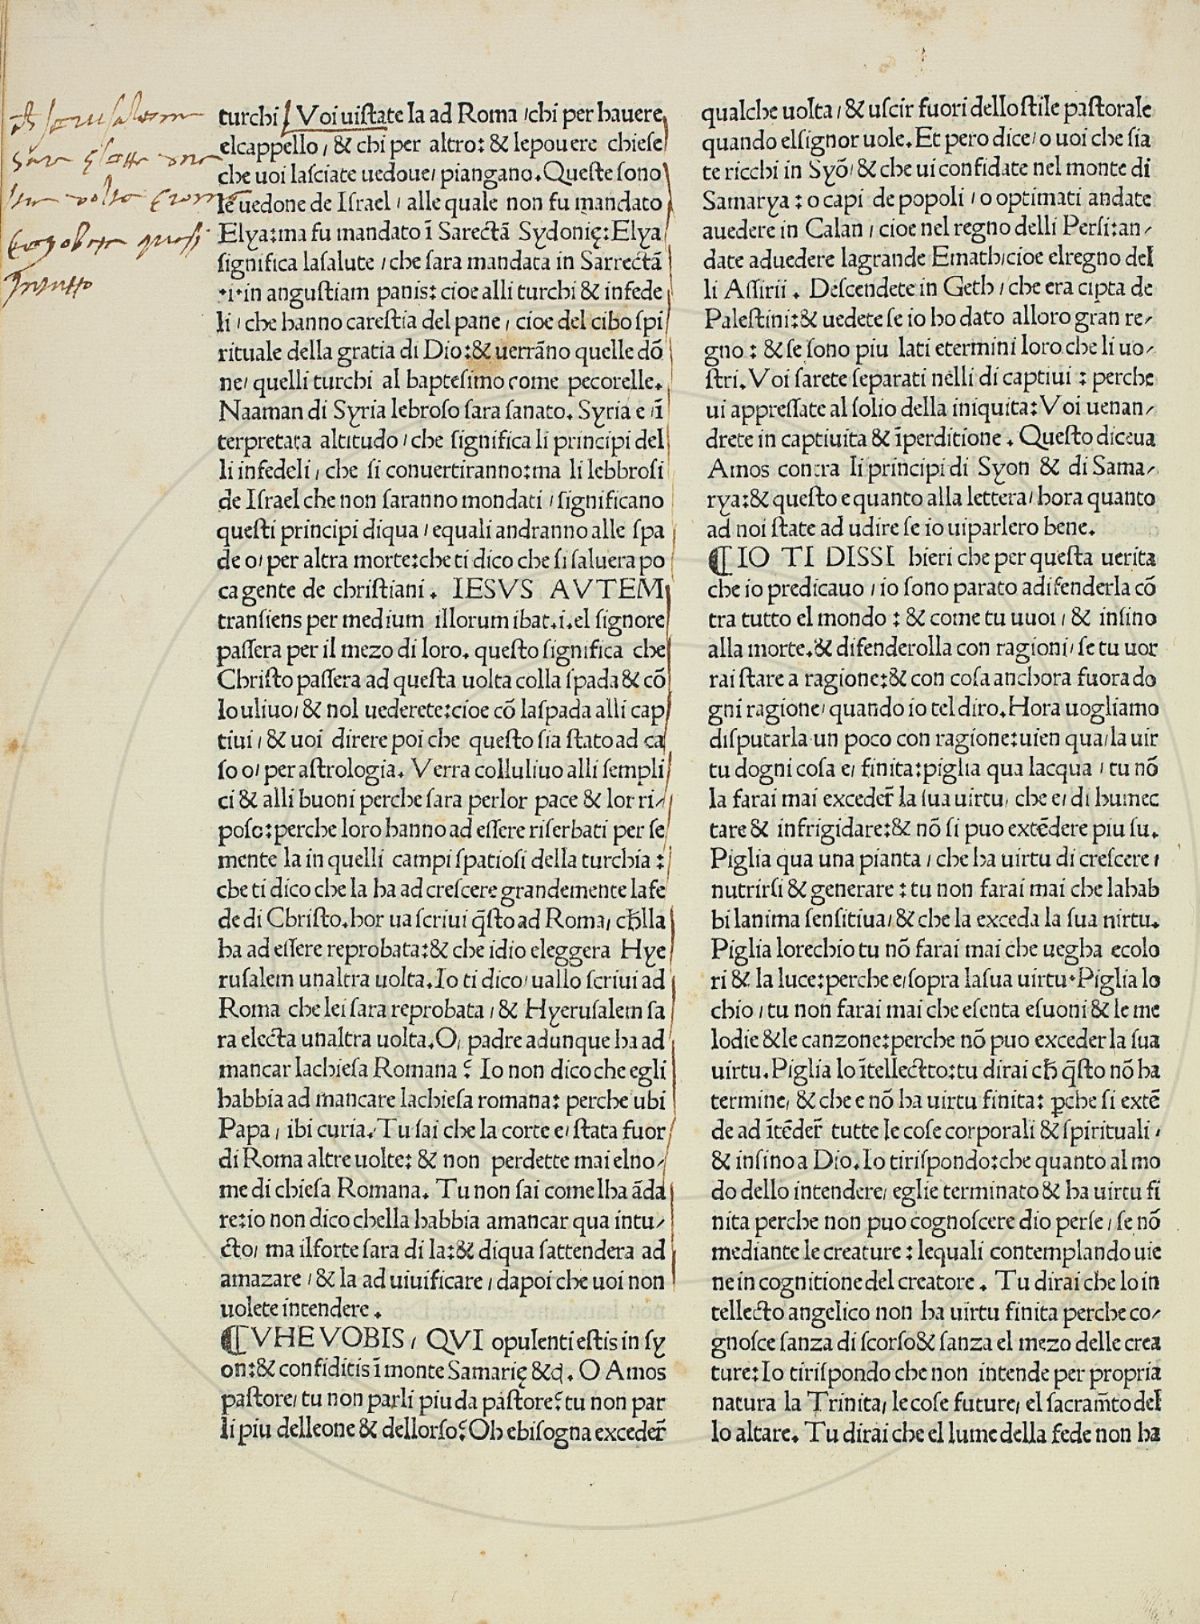 ch Jerusalemme
sara
turchi Voi uistate la ad Roma / chi per hauere
elcappello / & chi per altro: & lepouere chiese
che uoi lasciate uedoue/ piangano. Queste sono
le uedone de Israel / alle quale non fu mandato
Elya:ma fu mandato ī Sarectā Sydonię:Elya
significa lasalute / che sara mandata in Sarrectā
.i.in angustiam panis: cioe alli turchi & infede
li / che hanno carestia del pane / cioe del cibo spi
rituale della gratia di Dio:& uerrāno quelle dō
ne/ quelli turchi al baptesimo come pecorelle.
Naaman di Syria lebroso sara sanato. Syria e /ī
terpretata altitudo / che significa li principi del
li infedeli / che si conuertiranno:ma li lebbrosi
de Israel che non saranno mondati / significano
questi principi diqua / equali andranno alle spa
de o/ per altra morte:che ti dico che si saluera po
ca gente de christiani. IESVS AVTEM
transiens per medium illorum ibat.i.el signore
passera per il mezo di loro. questo significa che
Christo passera ad questa uolta colla spada & cō
lo uliuo/ & nol uederete:cioe cō laspada alli cap
tiui / & uoi direre poi che questo sia stato ad ca
so o/ per astrologia. Verra colluliuo alli sempli
ci & alli buoni perche sara perlor pace & lor ri/
poso:perche loro hanno ad essere riserbati per se
mente la in quelli campi spatiosi della turchia :
che ti dico che la ha ad crescere grandemente lafe
de di Christo. hor ua scriui q̄sto ad Roma/ ch̄lla
ha ad essere reprobata:& che idio eleggera Hye
rusalem unaltra uolta. Io ti dico/ uallo scriui ad
Roma che lei sara reprobata / & Hyerusalem sa
ra electa unaltra uolta. O/ padre adunque ha ad
mancar lachiesa Romana ? Io non dico che egli
habbia ad mancare lachiesa romana: perche ubi
Papa / ibi curia. Tu sai che la corte e/ stata fuor
di Roma altre uolte: & non perdette mai elno/
me di chiesa Romana. Tu non sai come lha āda
re:io non dico chella habbia amancar qua intu/
cto/ ma ilforte sara di la:& diqua sattendera ad
amazare / & la ad uiuificare / dapoi che uoi non
uolete intendere .
¶VHE VOBIS / QVI opulenti estis in sy
on:& confiditis ī monte Samarię &c̄. O Amos
pastore/ tu non parli piu da pastore? tu non par
li piu delleone & dellorso? Oh ebisogna exceder̄
qualche uolta / & uscir fuori dello stile pastorale
quando elsignor uole. Et pero dice/ o uoi che sia
te ricchi in Syō/ & che ui confidate nel monte di
Samarya : o capi de popoli / o optimati andate
auedere in Calan / cioe nel regno delli Persi:an/
date aduedere lagrande Emath/cioe elregno del
li Assirii . Descendete in Geth / che era cipta de
Palestini:& uedete se io ho dato alloro gran re/
gno : & se sono piu lati etermini loro che li uo/
stri. Voi sarete separati nelli di captiui : perche
ui appressate al solio della iniquita: Voi uenan/
drete in captiuita & īperditione . Questo diceua
Amos contra li principi di Syon & di Sama/
rya:& questo e quanto alla lettera / hora quanto
ad noi state ad udire se io uiparlero bene.
¶IO TI DISSI hieri che per questa uerita
che io predicauo / io sono parato adifenderla cō
tra tutto el mondo : & come tu uuoi / & insino
alla morte. & difenderolla con ragioni/ se tu uor
rai stare a ragione:& con cosa anchora fuora do
gni ragione/ quando io tel diro. Hora uogliamo
disputarla un poco con ragione:uien qua/ la uir
tu dogni cosa e/ finita:piglia qua lacqua / tu nō
la farai mai exceder̄ la sua uirtu/ che e/ di humec
tare & infrigidare:& nō si puo extēdere piu su.
Piglia qua una pianta / che ha uirtu di crescere /
nutrirsi & generare : tu non farai mai che lahab
bi lanima sensitiua/ & che la exceda la sua nirtu.
Piglia lorechio tu nō farai mai che uegha ecolo
ri & la luce:perche e/sopra lasua uirtu. Piglia lo
chio / tu non farai mai che esenta esuoni & le me
lodie & le canzone:perche nō puo exceder la sua
uirtu. Piglia lo ītellectto:tu dirai ch̄ q̄sto nō ha
termine/ & che e nō ha uirtu finita: ꝑche si extē
de ad ītēder̄ tutte le cose corporali & spirituali /
& insino a Dio. Io tirispondo:che quanto al mo
do dello intendere/ eglie terminato & ha uirtu fi
nita perche non puo cognoscere dio perse / se nō
mediante le creature : lequali contemplando uie
ne in cognitione del creatore . Tu dirai che lo in
tellecto angelico non ha uirtu finita perche co/
gnosce sanza di scorso & sanza el mezo delle crea
ture:Io tirispondo che non intende per propria
natura la Trinita/ le cose future/ el sacram̄to del
lo altare. Tu dirai che el lume della fede non ha